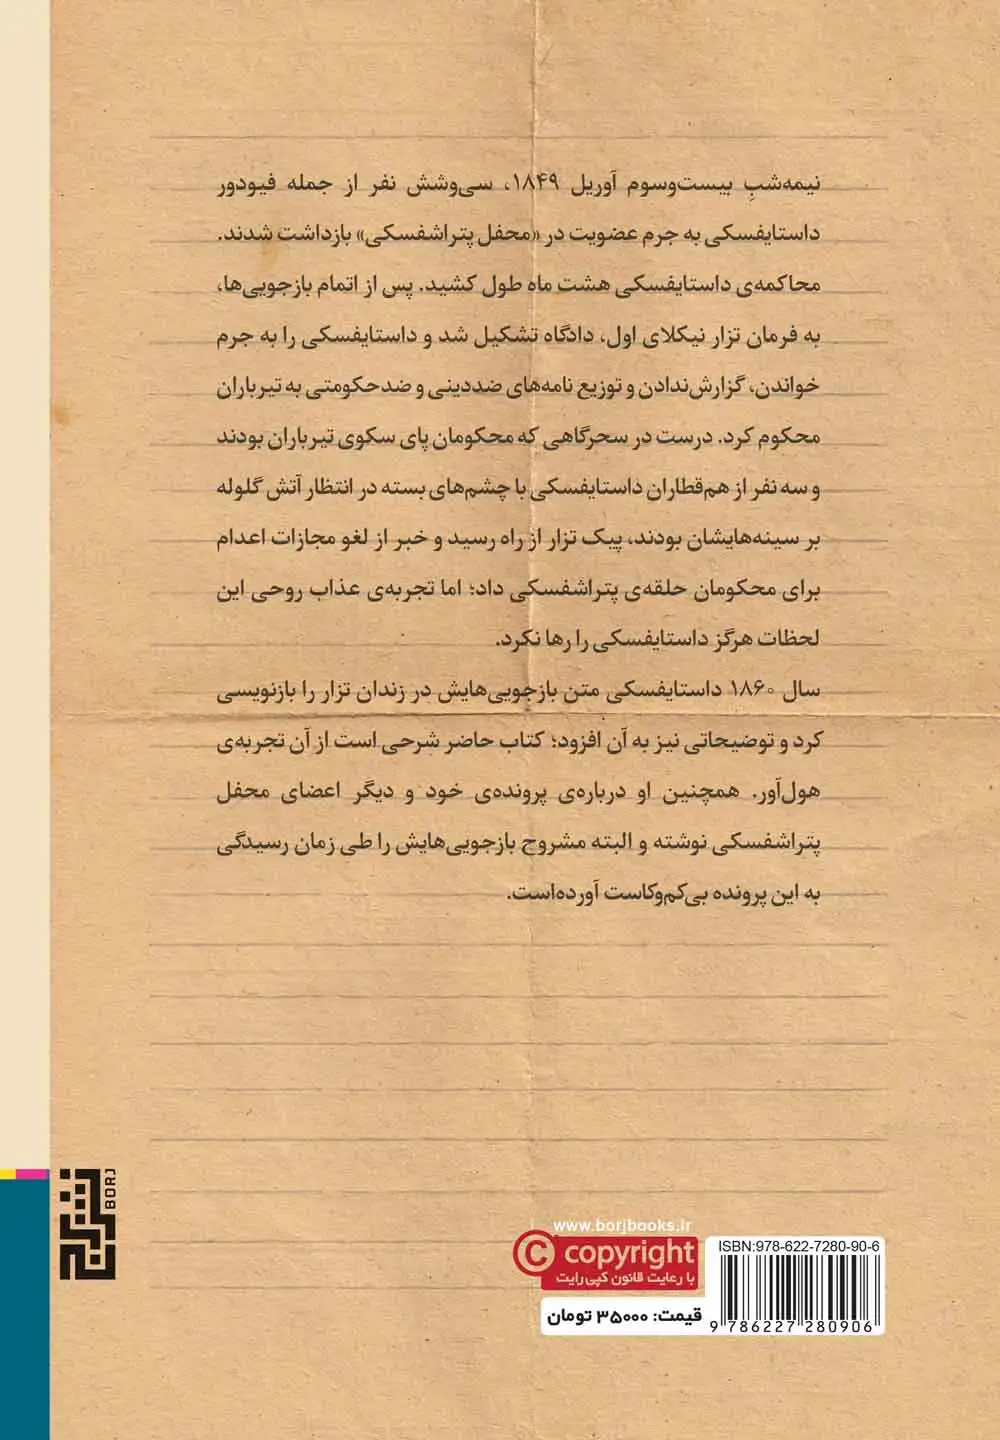 نیمه‌شبِ بیست‌وسوم آوریل ۱۸۴۹، سی‌وشش نفر از جمله فیودور
داستایفسکی به جرم عضویت در «محفل پتراشفسکی» بازداشت شدند.
محاکمه‌ی داستایفسکی هشت ماه طول کشید. پس از اتمام بازجویی‌ها،
به فرمان تزار نیکلای اول، دادگاه تشکیل شد و داستایفسکی را به جرم
خواندن، گزارش‌ندادن و توزیع نامه‌های ضددینی و ضدحکومتی به تیرباران
محکوم کرد. درست در سحرگاهی که محکومان پای سکوی تیرباران بودند
و سه نفر از هم‌قطاران داستایفسکی با چشم‌های بسته در انتظار آتش گلوله
بر سینه‌هایشان بودند، پیک تزار از راه رسید و خبر از لغو مجازات اعدام
برای محکومان حلقه‌ی پتراشفسکی داد؛ اما تجربه‌ی عذاب روحی این
لحظات هرگز داستایفسکی را رها نکرد.
سال ۱۸۶۰ داستایفسکی متن بازجویی‌هایش در زندان تزار را بازنویسی
کرد و توضیحاتی نیز به آن افزود؛ کتاب حاضر شرحی است از آن تجربه‌ی
هول‌آور. همچنین او درباره‌ی پرونده‌ی خود و دیگر اعضای محفل
پتراشفسکی نوشته و البته مشروح بازجویی‌هایش را طی زمان رسیدگی
به این پرونده بی‌کم‌وکاست آورده‌است.
برج
BORJ
www.borjbooks.ir
© copyright
با رعایت قانون کپی‌رایت
قیمت: ۳۵۰۰۰ تومان
ISBN:978-622-7280-90-6
9 786227 280906